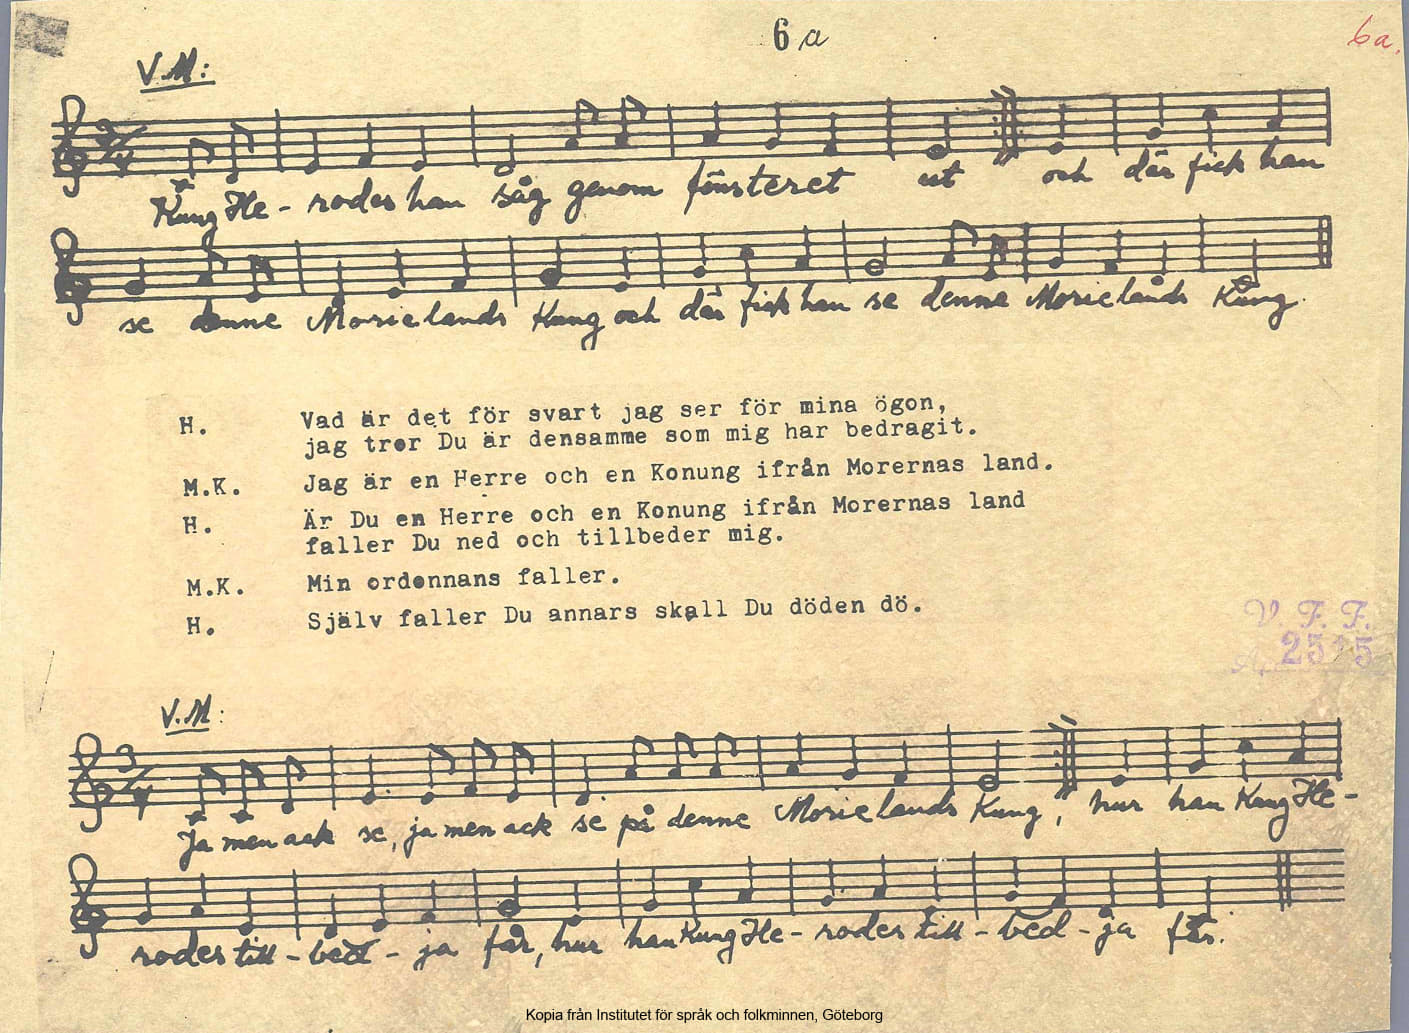 6 a
6a.
V.M:
Kung He- rodes han såg genom fönsteret ut och där fick han
se denne Morielands Kung och där fick han se denne Morielands Kung.
H. Vad är det för svart jag ser för mina ögon,
jag tror Du är densamme som mig har bedragit.
M.K. Jag är en Herre och en Konung ifrån Morernas land.
H. Är Du en Herre och en Konung ifrån Morernas land
faller Du ned och tillbeder mig.
M.K. Min ordonnans faller.
H. Själv faller Du annars skall Du döden dö.
V. F. F.
V.M:
Ja men ack se, ja men ack se på denne Morielands Kung, hur han Kung He-
rodes till - bed - ja får, hur han Kung He - rodes till - bed - ja får.
Kopia från Institutet för språk och folkminnen, Göteborg